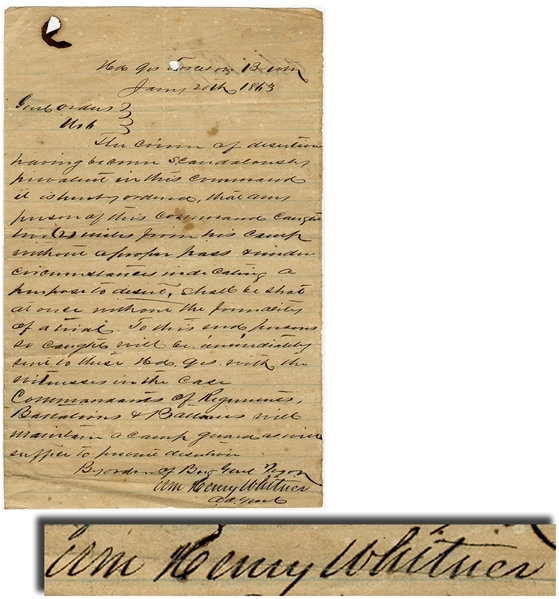 Hd Qrs B
Jany 20th 1863
Genl orders
No 6
The crime of desertion
having become scandalously
prevalent in this command
it is hereby ordered, that any
person of this command caught
two (2) miles from his camp
without a proper pass & under
circumstances indicating a
purpose to desert, shall be shot
at once without the formality
of a trial. To this end persons
so caught will be immediately
sent to these Hd. Qrs. with the
witnesses in the case
Commandants of Regiments,
Battalions & Batteries will
maintain a camp guard
suffer to prevent desertion
By order of Brig Genl
Wm Henry Whitner
A A Genl
Wm Henry Whitner